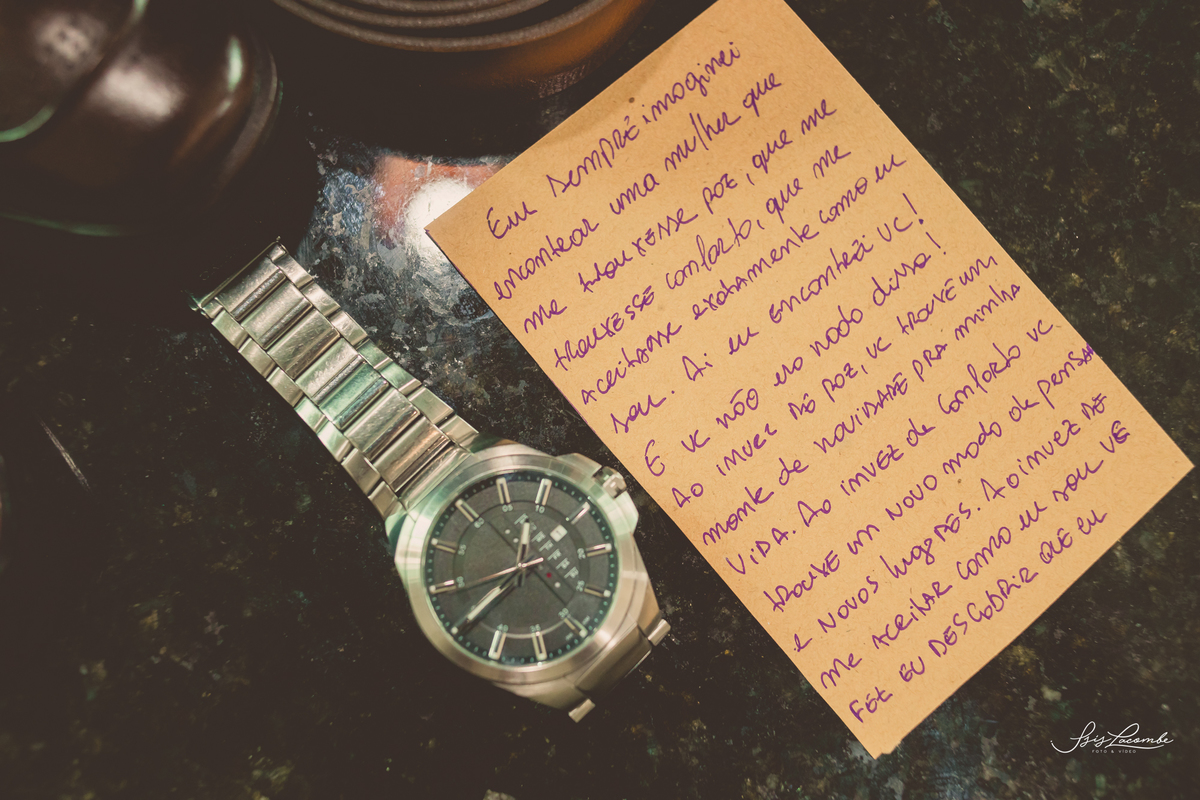 Eu sempre imaginei
encontrar uma mulher que
me trouxesse paz, que me
trouxesse conforto, que me
aceitasse exatamente como eu
sou. Ai eu encontrei vc!
E vc não era nada disso!
Ao invez de paz, vc trouxe um
monte de novidade pra minha
vida. Ao invez de conforto vc
trouxe um novo modo de pensar
e novos lugares. Ao invez de
me aceitar como eu sou vc
fez eu descobrir que eu
Isis Lacombe
FOTO & VÍDEO